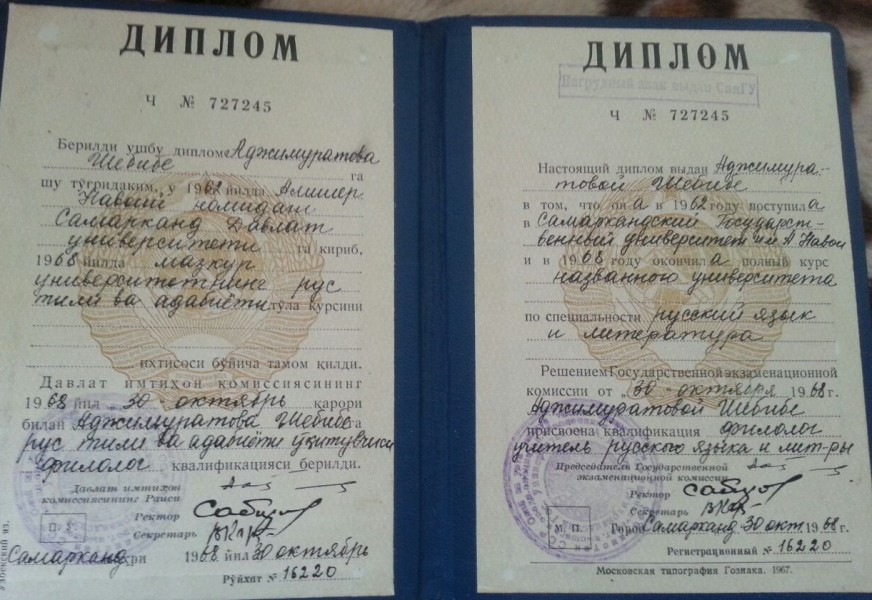 ДИПЛОМ
Ч № 727245
Берилди ушбу диплом Аджимуратова
Шебибе га
шу тўғридаким, у 1962 йилда Алишер
Навоий номидаги
Самарканд Давлат
университети га кириб,
1968 йилда мазкур
университетнинг рус
тили ва адабиёти тўла курсини
ихтисоси бўйича тамом қилди.
Давлат имтиҳон комиссиясининг
1968 йил 30 октябрь қарори
билан Аджимуратова Шебибе га
рус тили ва адабиёти ўқитувчиси
филолог квалификацияси берилди.
Давлат имтиҳон
комиссиясининг Раиси
Ректор
Секретарь
Самарканд 1968 йил 30 октябрь
Рўйхат № 16220
Узбекский яз.
ДИПЛОМ
Нагрудный знак выдан СамГУ
Ч № 727245
Настоящий диплом выдан Аджимура-
товой Шебибе
в том, что он а в 1962 году поступил а
в Самаркандский Государст-
венный университет им А Навои
и в 1968 году окончил а полный курс
названного университета
по специальности русский язык
и литература
Решением Государственной экзаменационной
комиссии от „30" октября 1968 г.
Аджимуратовой Шебибе
присвоена квалификация филолог
учитель русского языка и лит-ры
Председатель Государственной
экзаменационной комиссии
Ректор
Секретарь
М. П. Город Самарканд 30 окт. 1968 г.
Регистрационный № 16220
Московская типография Гознака. 1967.